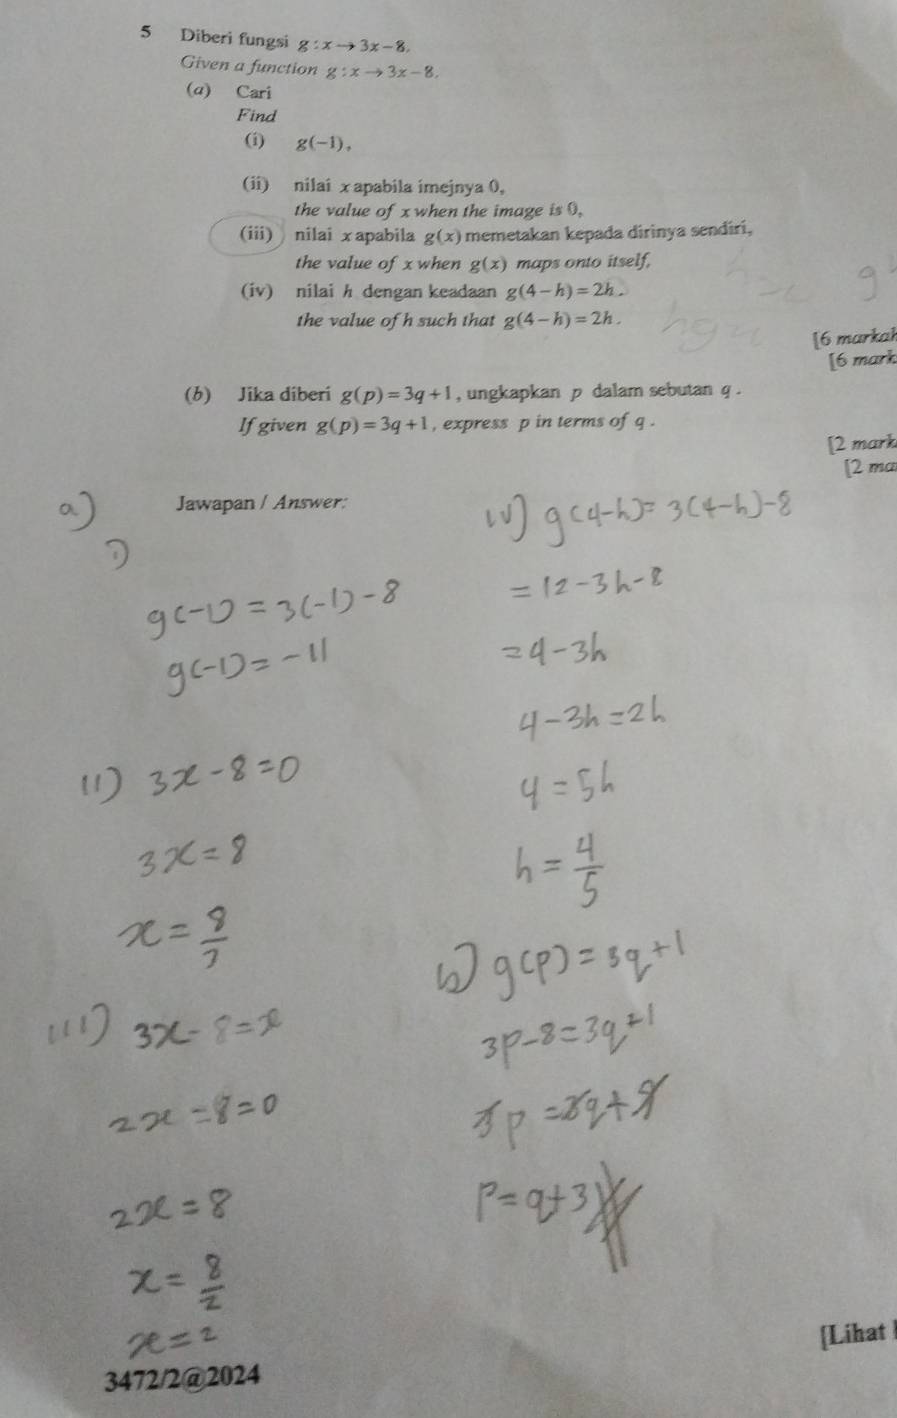 5 Diberi fungsi g : x → 3x − 8.
Given a function g : x → 3x − 8.
(a) Cari
Find
(i) g(−1),
(ii) nilai x apabila imejnya 0,
the value of x when the image is 0,
(iii) nilai x apabila g(x) memetakan kepada dirinya sendiri,
the value of x when g(x) maps onto itself,
(iv) nilai h dengan keadaan g(4 − h) = 2h.
the value of h such that g(4 − h) = 2h.
[6 markah
[6 mark
(b) Jika diberi g(p) = 3q + 1, ungkapkan p dalam sebutan q.
If given g(p) = 3q + 1, express p in terms of q.
[2 mark
[2 ma
Jawapan / Answer:
a)
i)
g(-1) = 3(-1) - 8
g(-1) = -11
ii) 3x - 8 = 0
3x = 8
x = 8/3
iii) 3x - 8 = x
2x - 8 = 0
2x = 8
x = 8/2
x = 2
iv) g(4-h) = 3(4-h)-8
= 12 - 3h - 8
= 4 - 3h
4 - 3h = 2h
4 = 5h
h = 4/5
b) g(p) = 3q + 1
3p - 8 = 3q + 1
3p = 3q + 9
p = q + 3
[Lihat
3472/2@2024